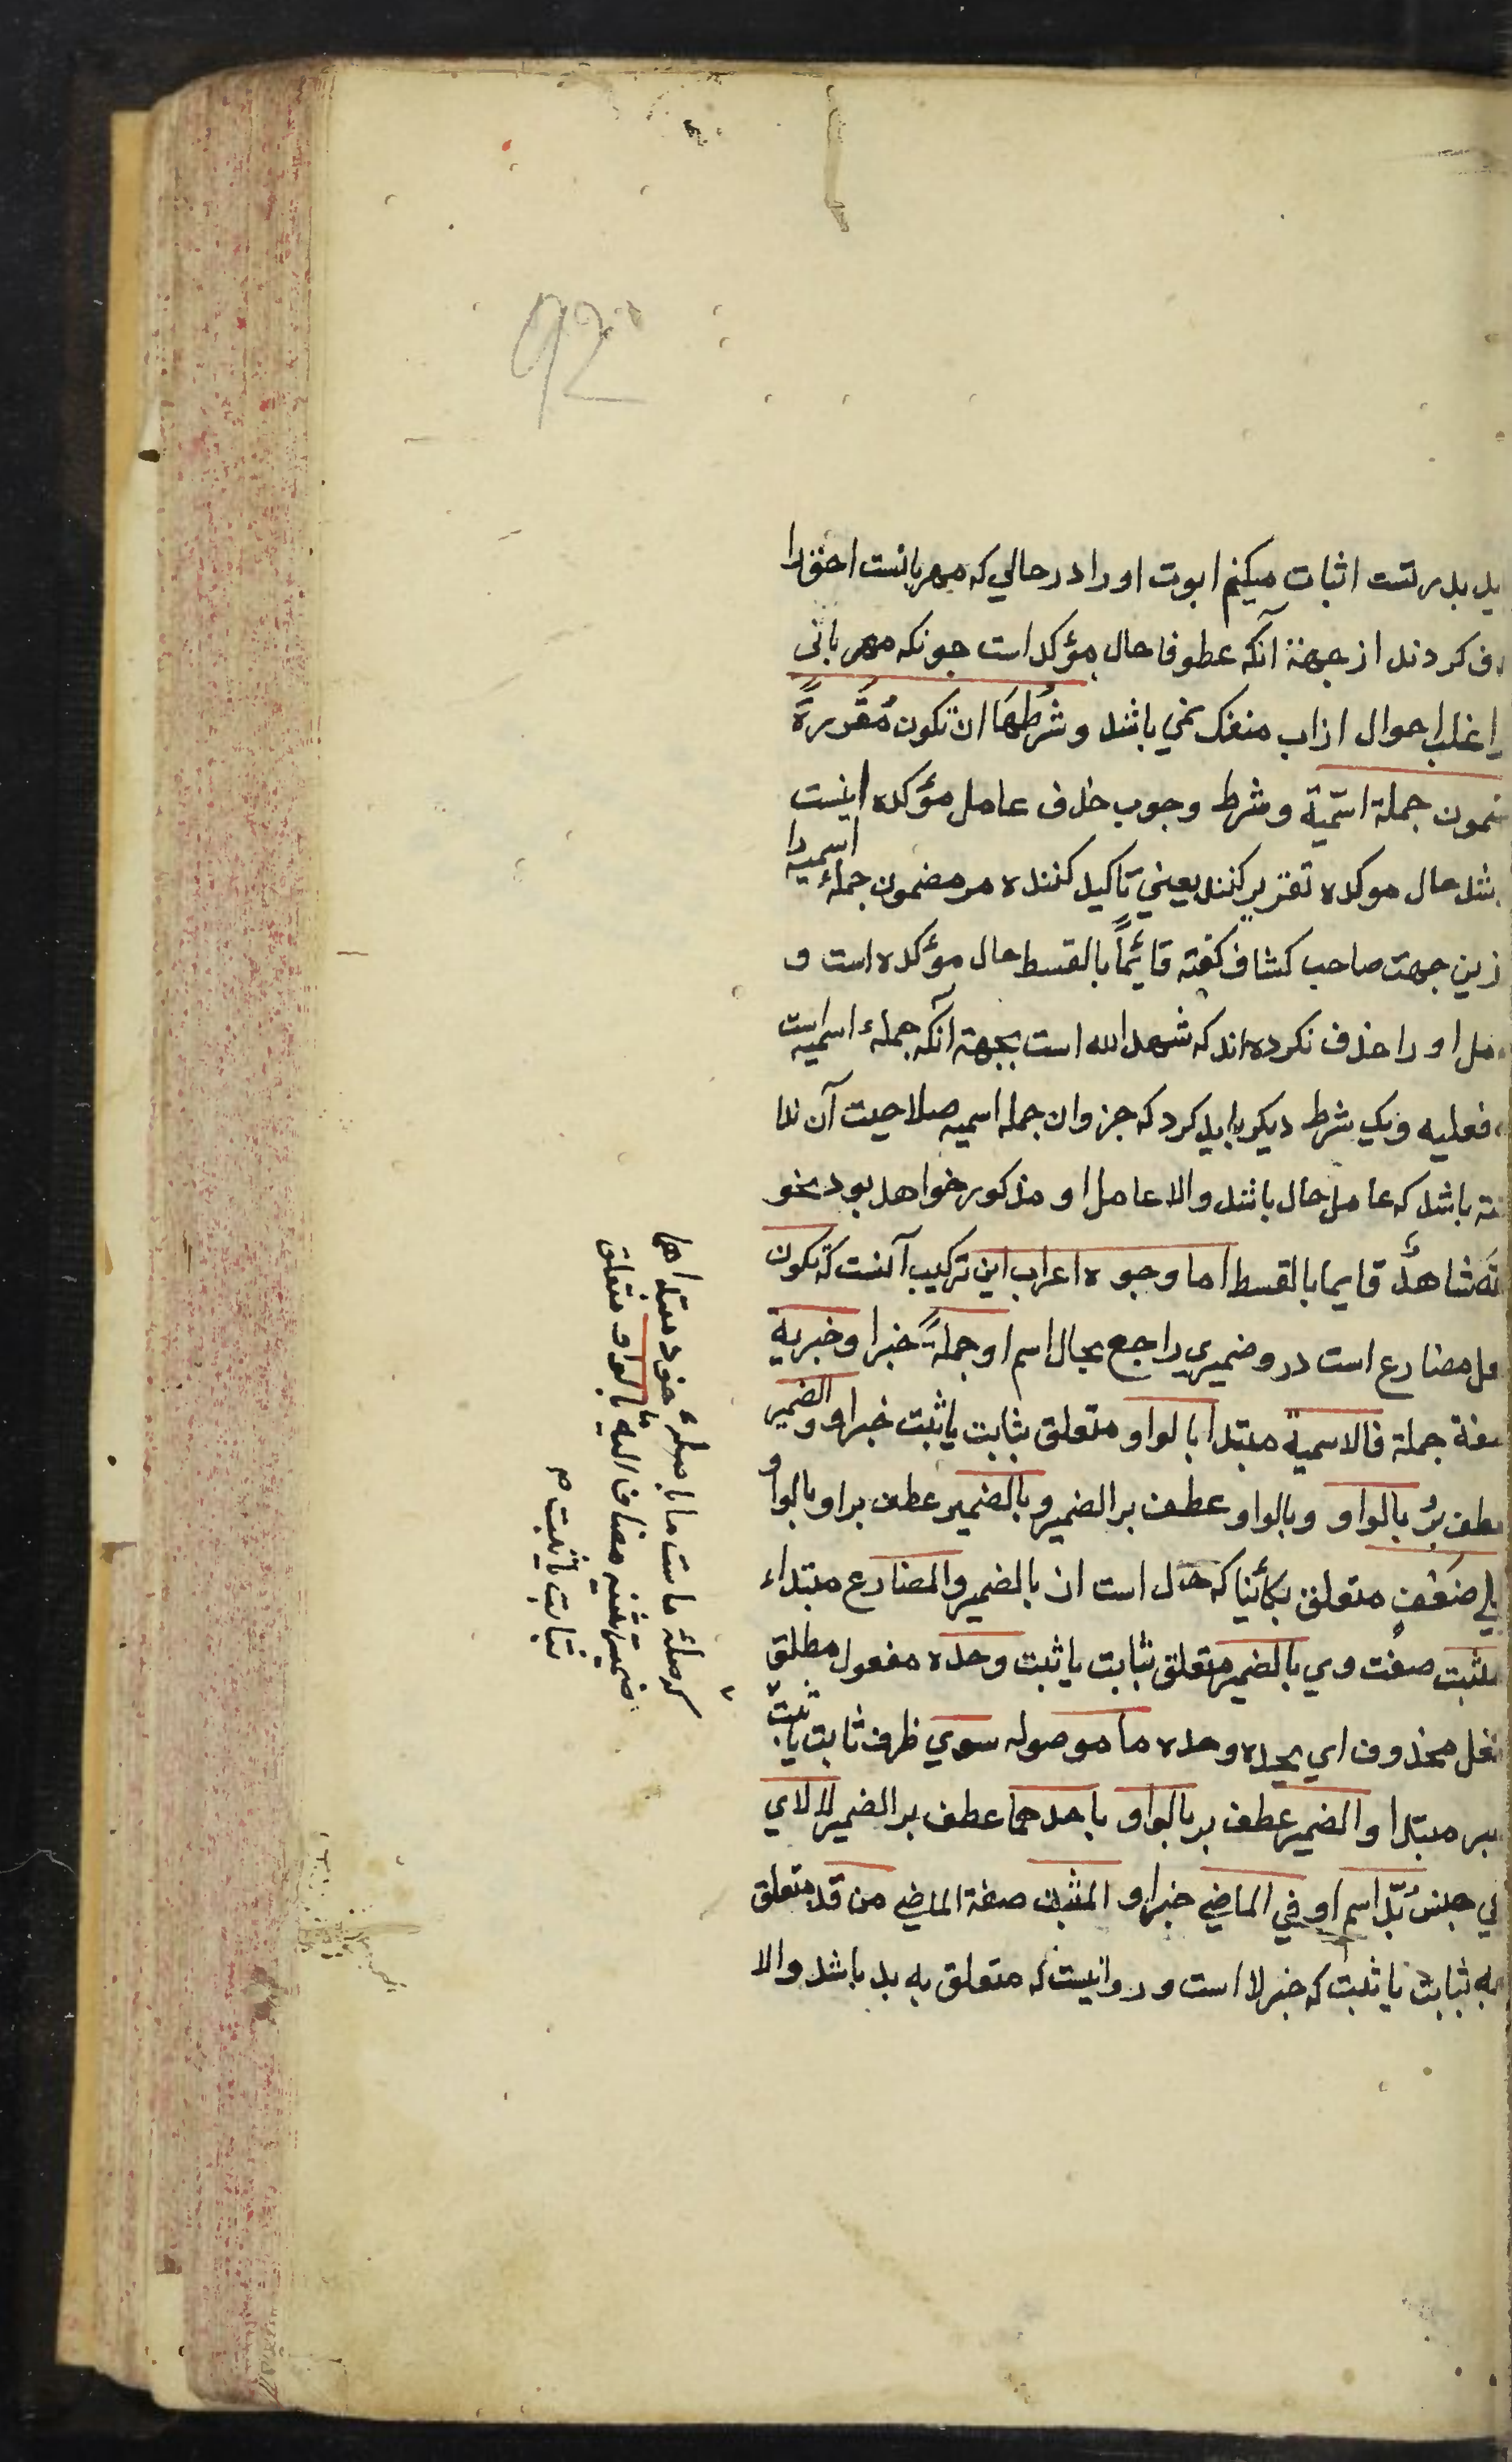 92
ید بدرتست اثبات میکنم ابوت اورا در حالی که مهربانست احق را
ف کردند از جهة آنکه عطوفا حال مؤکد است جونکه مهربانی
اغلب احوال ازاب منفک نمی باشد و شرطها ان تکون مقررة
مون جملة اسمیة و شرط وجوب حذف عامل مؤکده اینست
شد حال موکده تقریر کنند یعنی تاکید کننده مر مضمون جملهٔ اسمیه را
زین جهت صاحب کشاف کفته قائماً بالقسط حال مؤکده است و
مل او را حذف نکرده اند که شهد الله است بجهة آنکه جملهٔ اسمیه است
فعلیه ویک شرط دیکر باید کرد که جزوان جمله اسمیه صلاحیت آن ندا
شته باشد که عامل حال باشد والا عامل او مذکور خواهد بود نحو
شاهدٌ قایما بالقسط اما وجوه اعراب این ترکیب آنست که تکون
عل مضارع است درو ضمیری راجع بحال اسم او جملةً خبر او خبریة
صفة جملة فالاسمیة مبتدا بالواو متعلق بثابت یا ثبت خبر او والضمیر
عطف بر بالواو وبالواو عطف بر الضمیر و بالضمیر عطف بر او بالواو
علی ضعفٍ متعلق بکائنا که حال است از بالضمیر والمضارع مبتداء
المثبت صفت وی بالضمیر متعلق بثابت یا ثبت وحده مفعول مطلق
فعل محذوف ای یحده وحده ما موصوله سوی ظرف ثابت یا ثبت
خبر مبتدا والضمیر عطف بر بالواو باحدهما عطف بر الضمیر لا لای
نفی جنس بُدّ اسم او فی الماضی خبر او المثبت صفة الماضی من قد متعلق
به ثبابت یا ثبت که خبر لا است وروانیست که متعلق به بد باشد والا
که صلهٔ ماست ما با صلهٔ خود مبتدا هما
ضمیر تثنیه مضاف الیه بالواو متعلق
بثابت یا ثبت